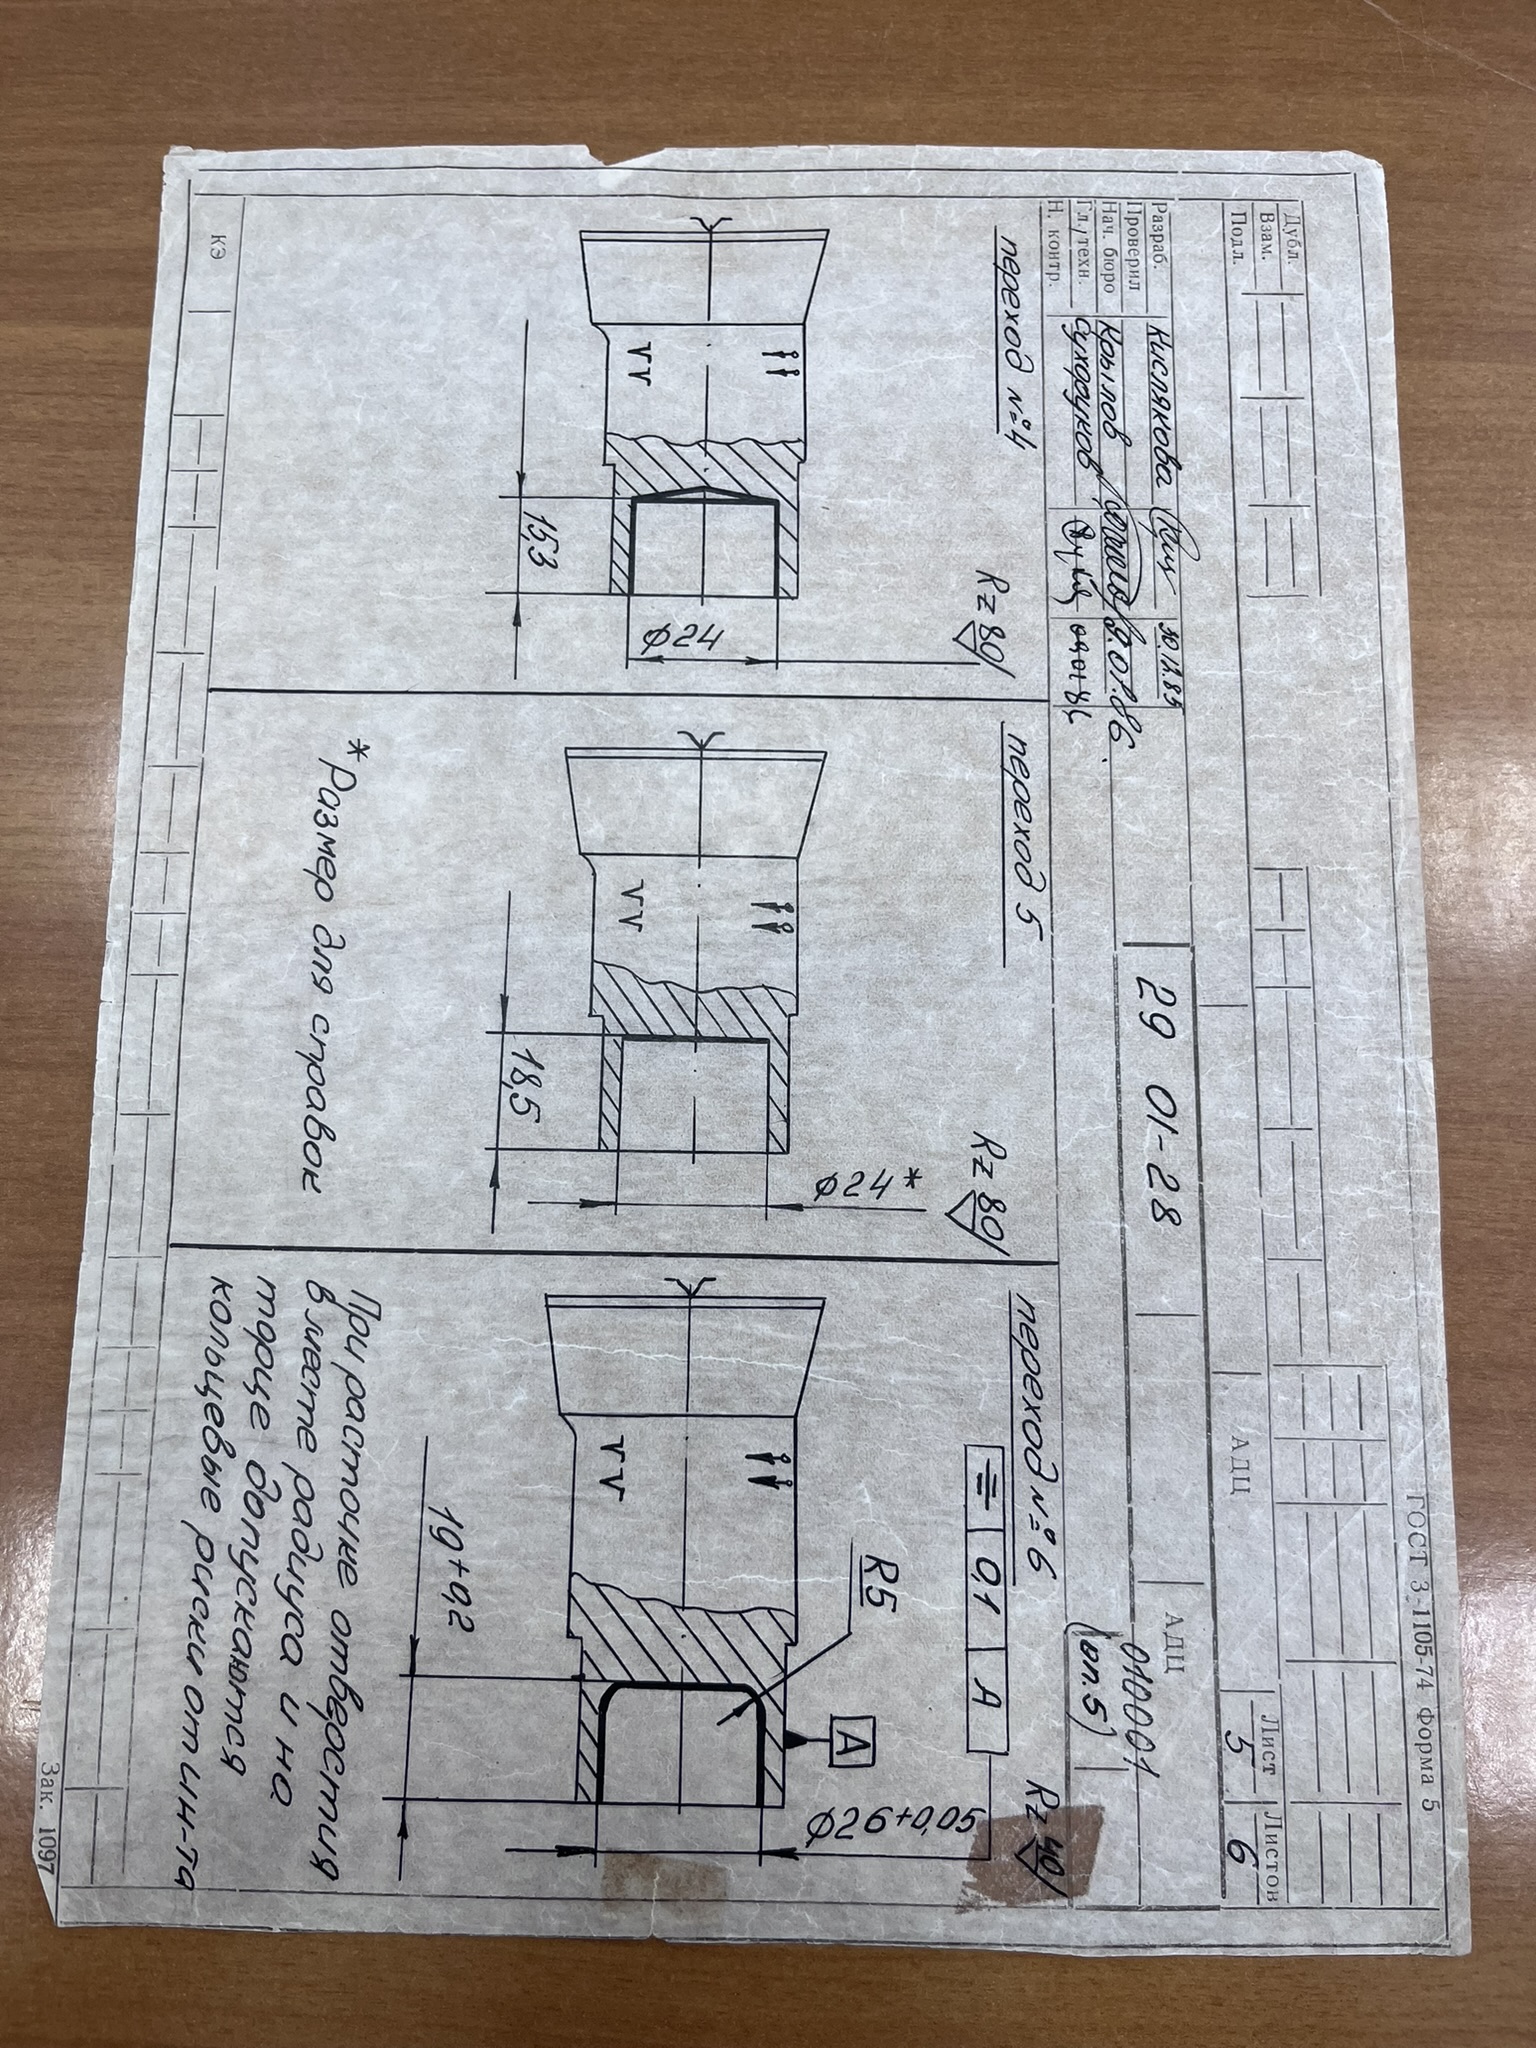 ГОСТ 3-1105-74 Форма 5
Дубл.
Взам.
Подл.
АДЦ
Лист
Листов
5
6
Разраб.
Кислякова
30.12.85
29 01-28
АДЦ
Проверил
010001
Нач. бюро
Крылов
9.01.86.
(оп.5)
Гл. техн.
Сухоруков
090186
Н. контр.
переход №4
Rz 80
⌀24
15,3
переход 5
Rz 80
⌀24*
18,5
*Размер для справок
переход №6
Rz 40
0,1 А
⌀26+0,05
R5
А
19+0,2
При расточке отверстия
в месте радиуса и на
торце допускаются
кольцевые риски от ин-та
КЭ
Зак. 1097